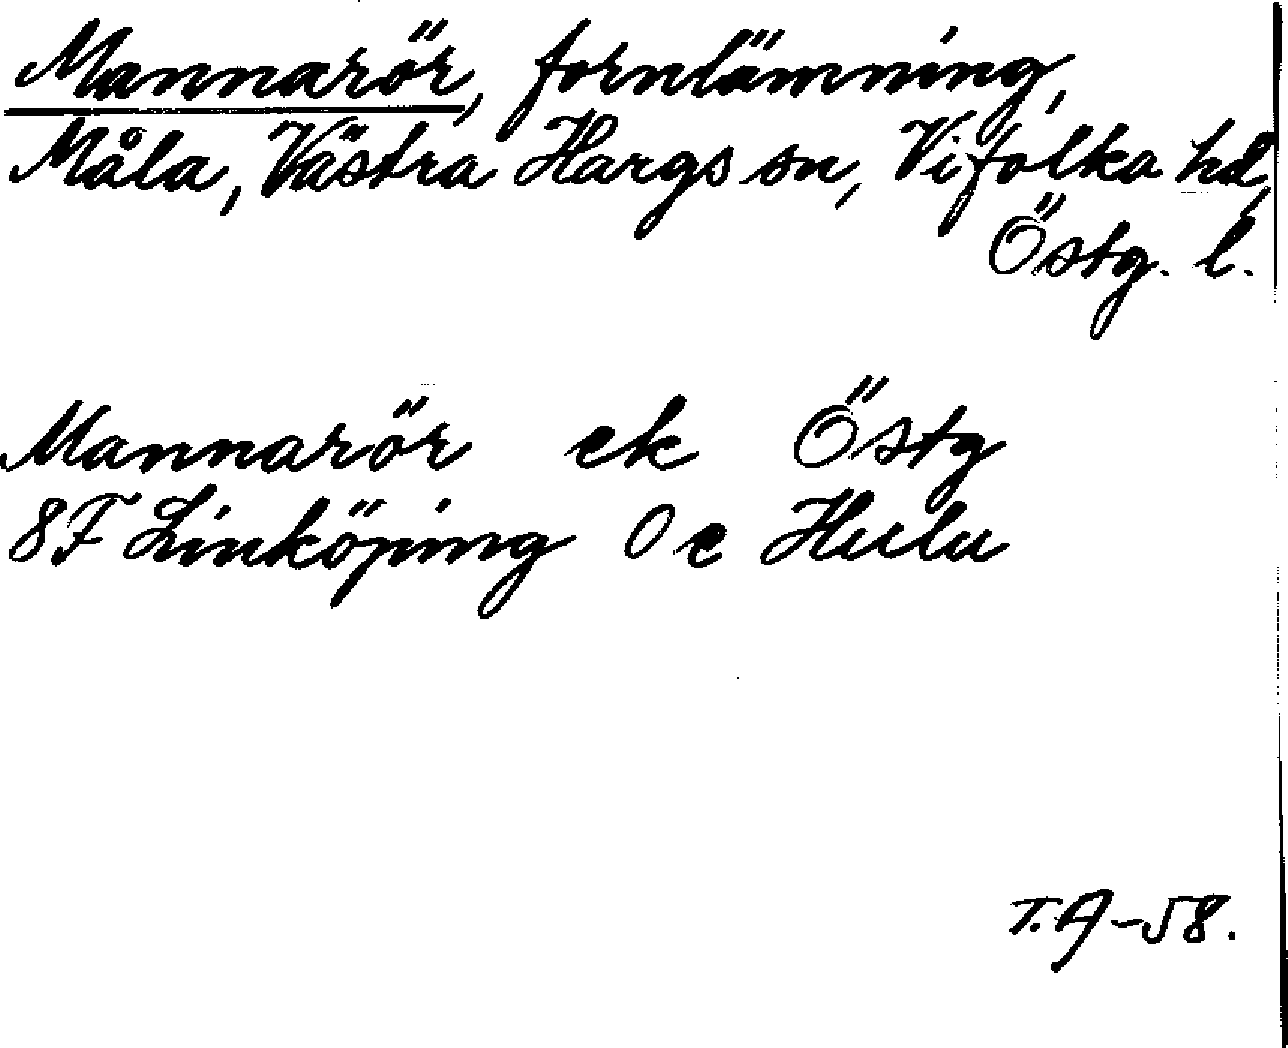 Mannarör, fornlämning,
Måla, Västra Hargs sn, Vifolka hd,
Östg. l.
Mannarör ek Östg
8F Linköping 0e Hulu
T.A-58.